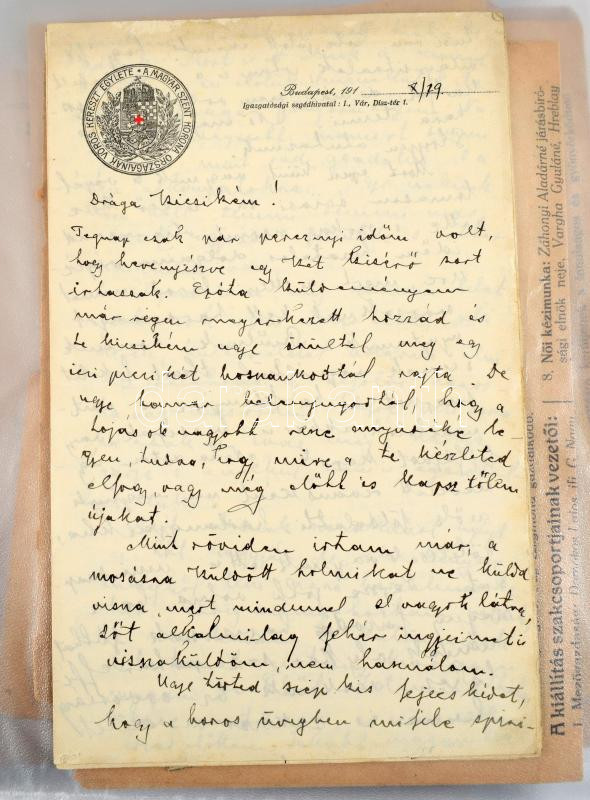 A MAGYAR SZENT KORONA ORSZÁGAINAK VÖRÖS KERESZT EGYLETE
Budapest, 191 X/19
Igazgatósági segédhivatal: I., Vár, Disz-tér 1.
Drága Kicsikém!
Tegnap csak pár percznyi időm volt,
hogy hevenyészve egy két kisérő sort
irhassak. Azóta küldeményem
már régen megérkezett hozzád és
te kicsikém ugye örültél meg egy
ici picikét bosszankodtál rajta. De
ugye hamar belenyugodtál, hogy a
tojások nagyobb része anyusé
legyen, tudva, hogy mire a te készleted
elfogy, vagy még előbb is kapsz tőlem
újakat.
Mint röviden irtam már, a
mosásra küldött holmikat ne küldd
vissza, mert mindennel el vagyok látva,
sőt alkalmilag fehér ingjeimet is
visszaküldöm, nem használom.
Ugye töröd szép kis fejecskédet,
hogy a boros üvegben miféle
8. Női kézimunka: Záhonyi Aladárné járásbiró-
sági elnök neje, Vargha Gyuláné, Hreblay
A kiállítás szakcsoportjainak vezetői:
1. Mezőgazdaság: